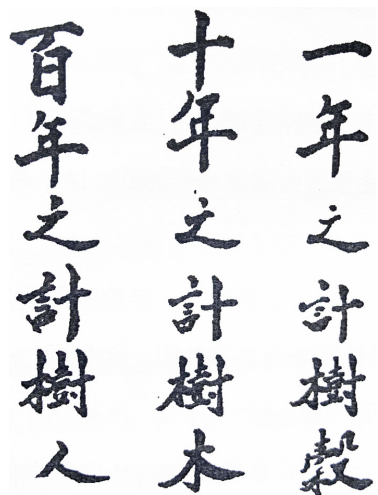 一年之計樹穀
十年之計樹木
百年之計樹人